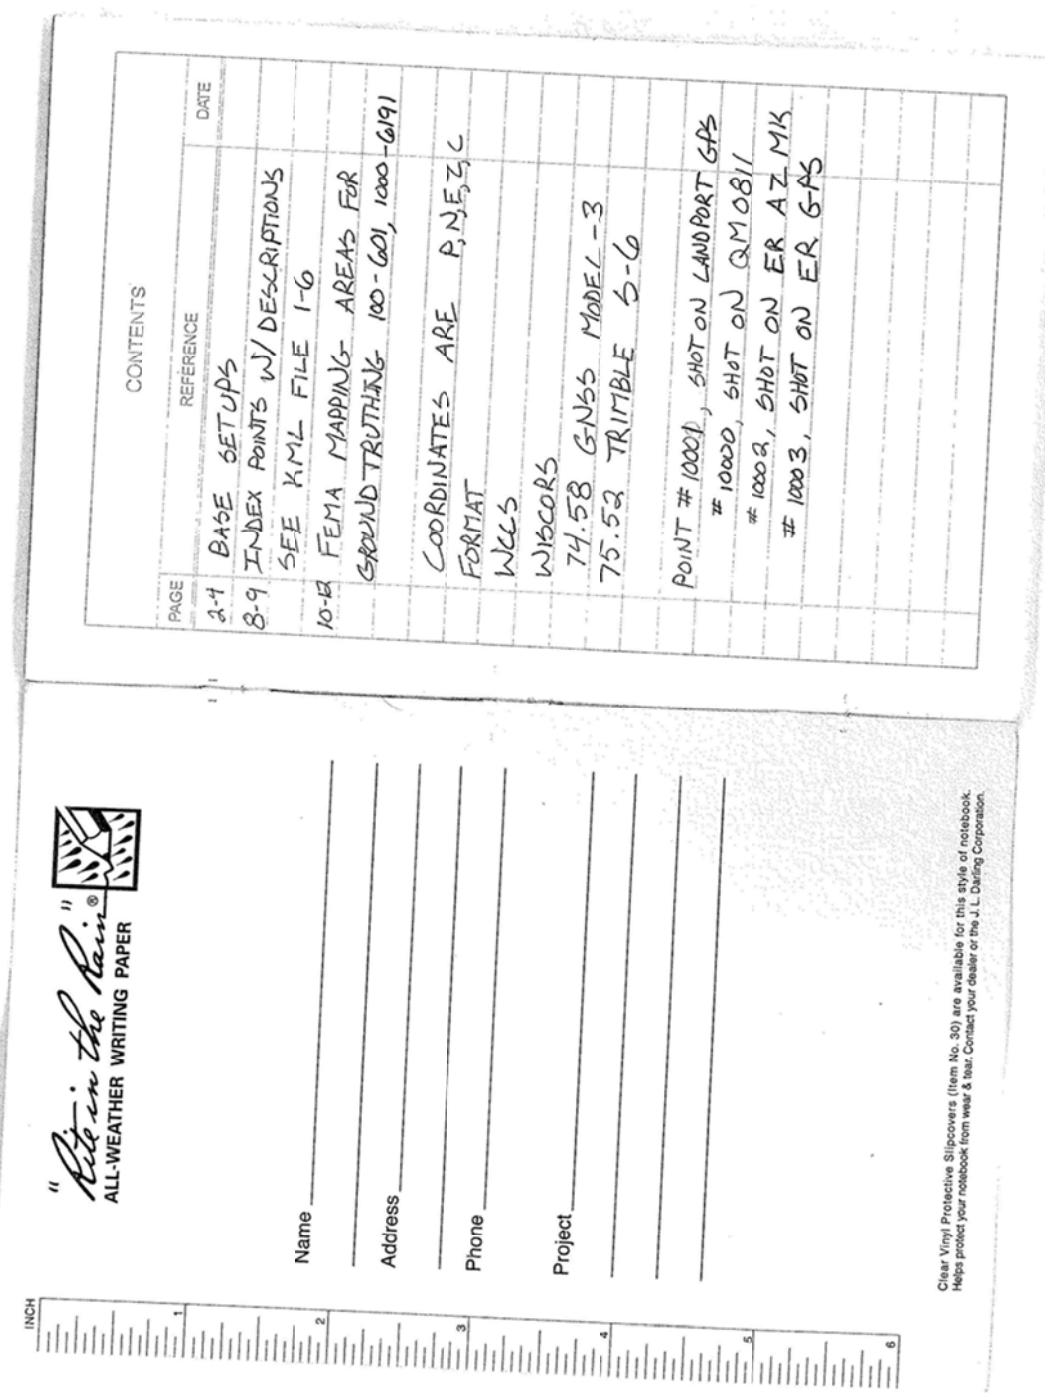 "Rite in the Rain"®
ALL-WEATHER WRITING PAPER
Name
Address
Phone
Project
Clear Vinyl Protective Slipcovers (Item No. 30) are available for this style of notebook.
Helps protect your notebook from wear & tear. Contact your dealer or the J. L. Darling Corporation.
INCH
1
2
3
4
5
6
CONTENTS
PAGE REFERENCE DATE
2-4 BASE SETUPS
8-9 INDEX POINTS W/ DESCRIPTIONS
SEE KML FILE 1-6
10-12 FEMA MAPPING AREAS FOR
GROUND TRUTHING 100-601, 1000-6191
COORDINATES ARE P,N,E,Z,C
FORMAT
WCCS
WISCORS
74.58 GNSS MODEL-3
75.52 TRIMBLE S-6
POINT # 10001, SHOT ON LANDPORT GPS
# 10000, SHOT ON QM0811
# 10002, SHOT ON ER AZ MK
# 10003, SHOT ON ER GPS